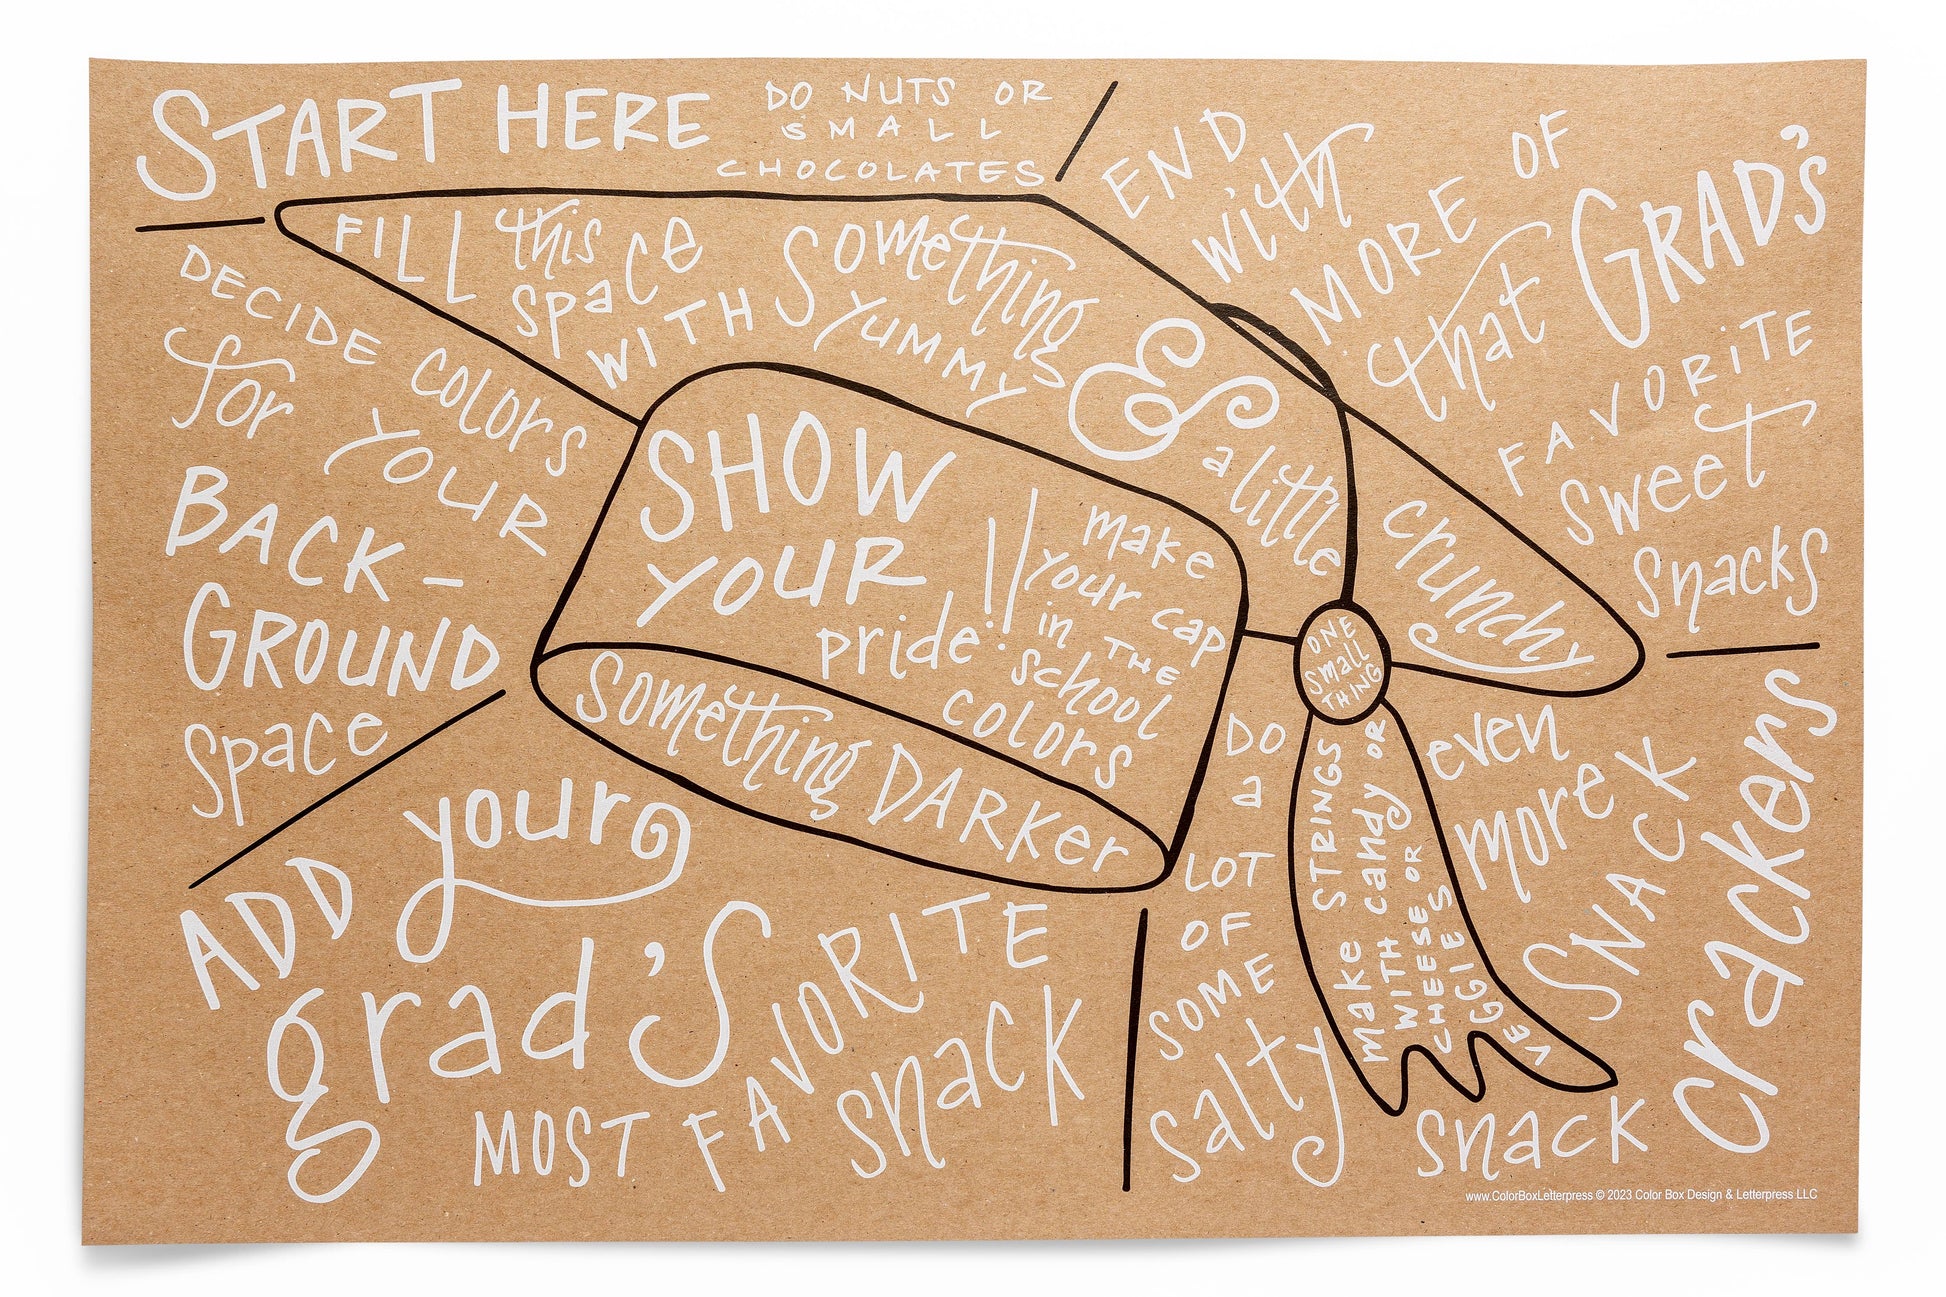 START HERE
DO NUTS OR
SMALL
CHOCOLATES
END
with
MORE OF
that GRAD'S
FAVORITE
sweet
snacks
FILL this
space
WITH
something
YUMMY
&
a little
crunchy
DECIDE colors
for YOUR
BACK-
GROUND
space
SHOW
YOUR
pride!
make
your cap
in THE
school
colors
something DARKer
ONE
small
THING
MAKE STRINGS
WITH candy OR
CHEESE OR
VEGGIES
ADD your
grad's
MOST FAVORITE
snack
DO
a
LOT
OF
SOME
salty
snack
crackers
even
more
SNACK
www.ColorBoxLetterpress © 2023 Color Box Design & Letterpress LLC